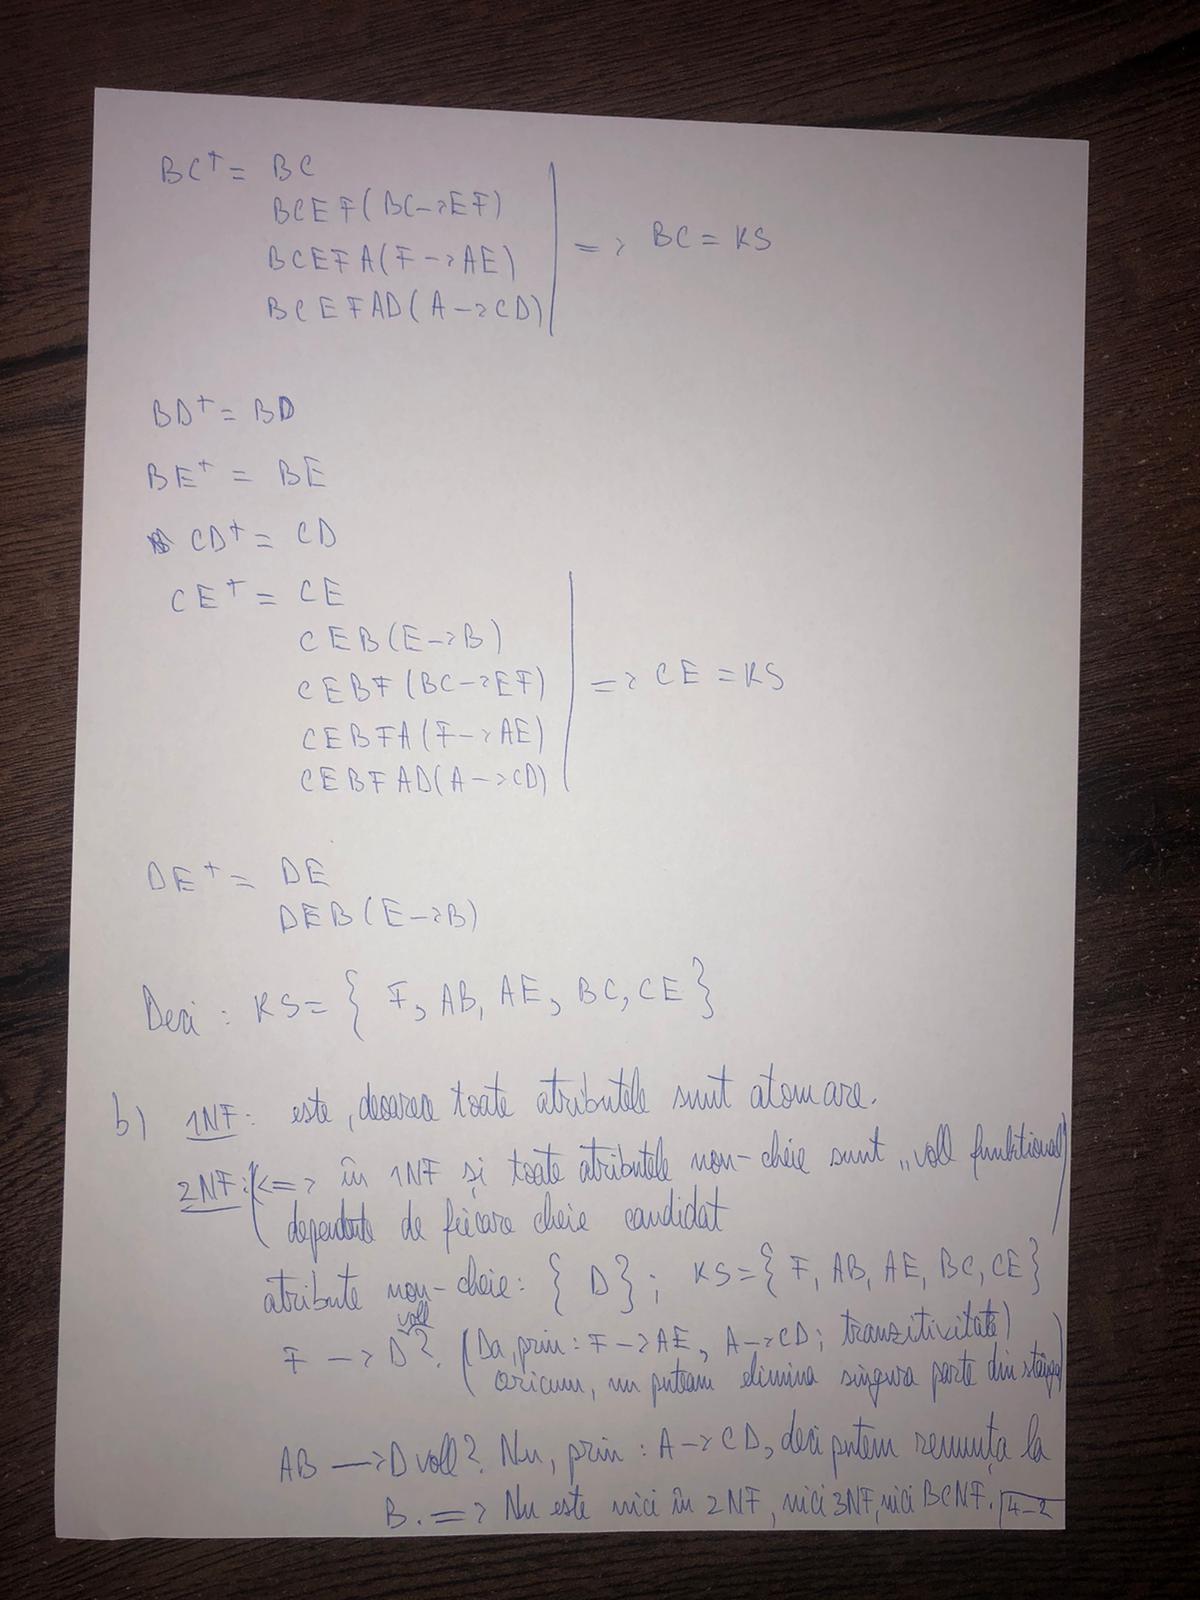 BC⁺ = BC
BCEF (BC->EF)
BCEFA (F->AE)
BCEFAD (A->CD)
=> BC = KS
BD⁺ = BD
BE⁺ = BE
CD⁺ = CD
CE⁺ = CE
CEB (E->B)
CEBF (BC->EF)
CEBFA (F->AE)
CEBFAD (A->CD)
=> CE = KS
DE⁺ = DE
DEB (E->B)
Deci : KS = { F, AB, AE, BC, CE }
b) 1NF: este, deoarece toate atributele sunt atomare.
2NF: (<=> în 1NF și toate atributele non-cheie sunt „voll funktional"
dependente de fiecare cheie candidat)
atribute non-cheie: { D } ; KS = { F, AB, AE, BC, CE }
F -> D voll? (Da, prin: F->AE, A->CD; tranzitivitate)
oricum, nu puteam elimina singura parte din stânga)
AB -> D voll? Nu, prin: A->CD, deci putem renunța la
B. => Nu este nici în 2NF, nici 3NF, nici BCNF. 4-2